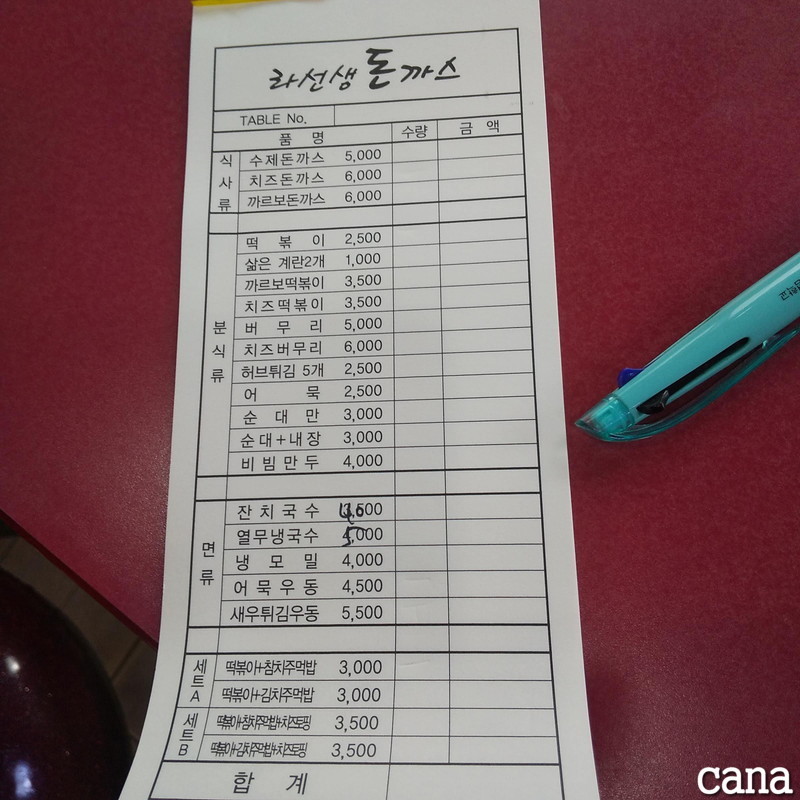 라선생 돈까스
TABLE No.
품 명 수량 금 액
식사류
수제돈까스 5,000
치즈돈까스 6,000
까르보돈까스 6,000
분식류
떡 볶 이 2,500
삶은 계란2개 1,000
까르보떡볶이 3,500
치즈떡볶이 3,500
버 무 리 5,000
치즈버무리 6,000
허브튀김 5개 2,500
어 묵 2,500
순 대 만 3,000
순대+내장 3,000
비빔만두 4,000
면류
잔치국수
열무냉국수
냉 모 밀 4,000
어묵우동 4,500
새우튀김우동 5,500
세트A
떡볶이+참치주먹밥 3,000
떡볶이+김치주먹밥 3,000
세트B
떡볶이+참치주먹밥+치즈토핑 3,500
떡볶이+김치주먹밥+치즈토핑 3,500
합 계
cana